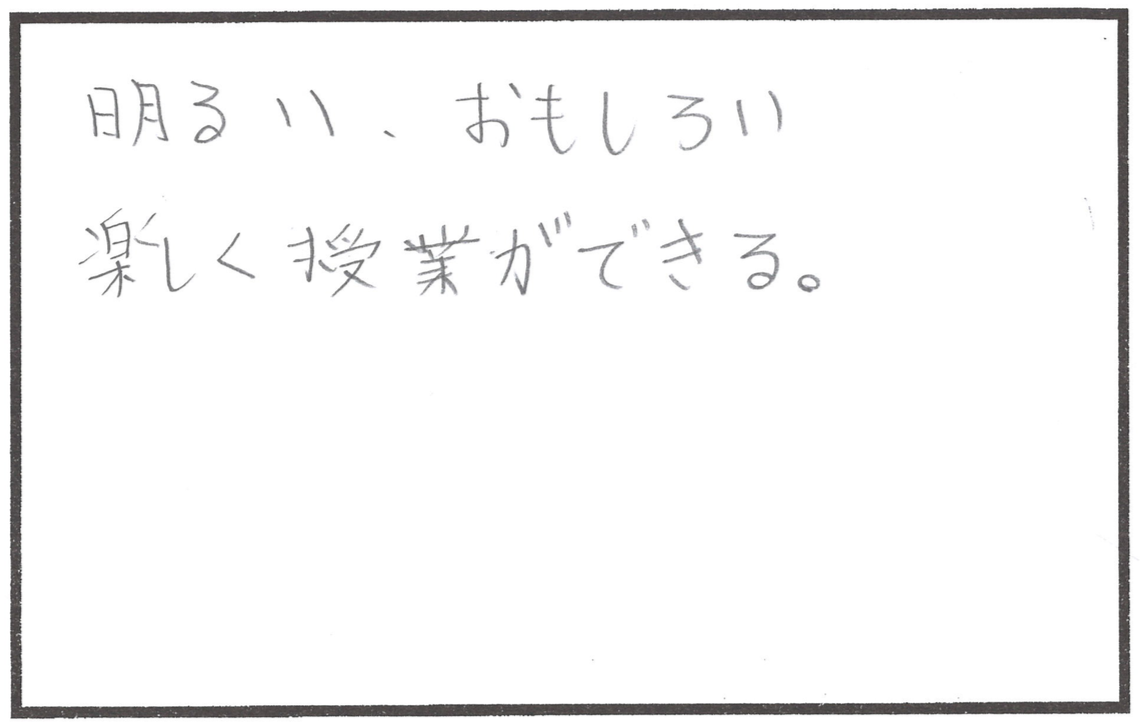 明るい、おもしろい
楽しく授業ができる。